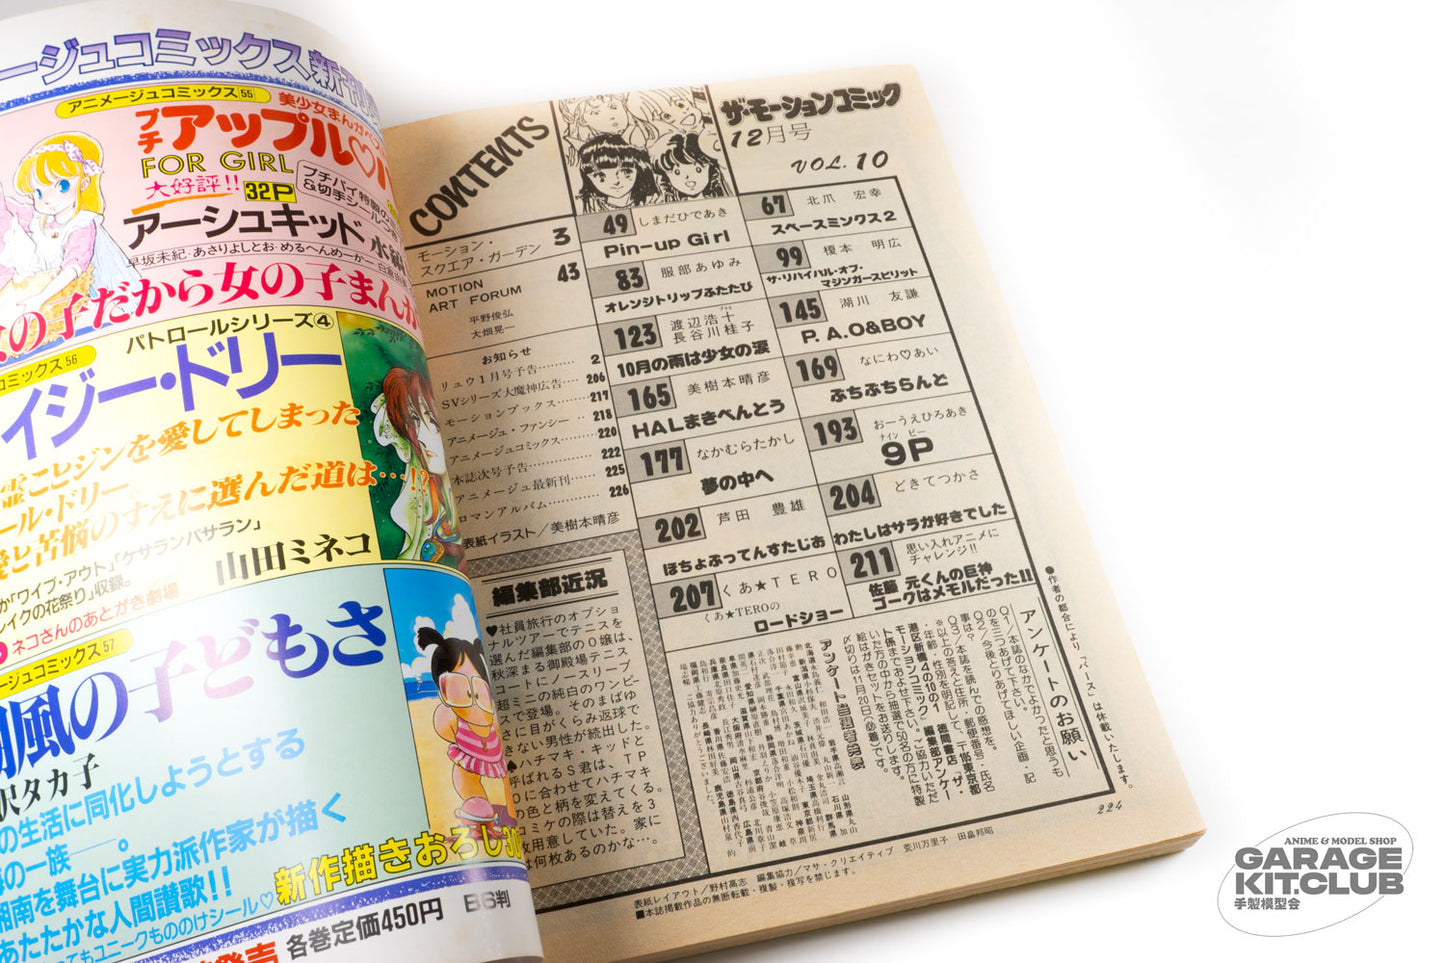 ージュコミックス新刊
アニメージュコミックス55
美少女まんがベ
プチアップル♡パ
FOR GIRL
大好評!! 32P
プチパイ特製の
&切手シールつき
アーシュキッド 水縞
早坂未紀・あさりよしとお・めるへんめーかー・白倉由美
の子だから女の子まんが
コミックス56
パトロールシリーズ④
イジー・ドリー
霊ことジンを愛してしまった
ール・ドリー。
愛と苦悩のすえに選んだ道は…!?
か「ワイプ・アウト」「ケサランパサラン」
レイクの花祭り」収録。
ネコさんのあとがき劇場
山田ミネコ
ージュコミックス57
潮風の子どもさ
沢タカ子
の生活に同化しようとする
の一族——。
湘南を舞台に実力派作家が描く
あたたかな人間讃歌!!
とてもユニークもののけシール♡
新作描きおろし30
発売 各巻定価450円 B6判
CONTENTS
ザ・モーションコミック
12月号
VOL.10
モーション・
スクエア・ガーデン 3
MOTION
ART FORUM 43
平野俊弘
大畑晃一
お知らせ
リュウ1月号予告…… 2
SVシリーズ大魔神広告… 206
モーションブックス…… 217
アニメージュ・ファンシー 218
アニメージュコミックス…… 220
本誌次号予告…… 222
アニメージュ最新刊…… 225
ロマンアルバム…… 226
表紙イラスト/美樹本晴彦
49 しまだひであき
Pin-up Girl
83 服部あゆみ
オレンジトリップふたたび
123 渡辺浩十
長谷川桂子
10月の雨は少女の涙
165 美樹本晴彦
HALまきべんとう
177 なかむらたかし
夢の中へ
202 芦田 豊雄
ほちょふってんすたじお
207 くあ★TERO
くあ★TEROの
ロードショー
67 北爪 宏幸
スペースミンクス2
99 榎本 明広
ザ・リバイバル・オブ・
マジンガースピリット
145 湖川 友謙
P.A.O&BOY
169 なにわ♡あい
ぷちぷちらんど
193 おーうえひろあき
ナイン ピー
9P
204 どきてつかさ
わたしはサラが好きでした
211 思い入れアニメに
チャレンジ!!
佐藤 元くんの巨神
ゴーグはメモルだった!!
●作者の都合により、『バース』は休載いたします。
編集部近況
♥社員旅行のオプショ
ナルツアーでテニスを
選んだ編集部のO嬢は、
秋深まる御殿場テニス
コートにノースリーブ
超ミニの純白のワンピー
スで登場。そのまばゆ
さに目がくらみ返球で
きない男性が続出した。
♠ハチマキ・キッドと
呼ばれるS君は、TP
Oに合わせてハチマキ
の色と柄を変えてくる。
コミケの際は替えを3
枚用意していた。家に
は何枚あるのかな…。
アンケートのお願い
Q1/本誌のなかでよかったと思うも
のを三つあげて下さい。
Q2/今後とりあげてほしい企画・記
事は?
Q3/本誌を読んでの感想を。
※以上の答えと住所、郵便番号・氏名
・年齢・性別を明記して、〒105東京都
港区新橋4の10の1 徳間書店『ザ・
モーションコミック』編集部アンケー
ト係までおよせ下さい。ご協力いただ
いた方の中から抽選で50名の方に特製
絵はがきセットをお送りします。
〆切りは11月20日(必着)です。
アンケート当選者発表
ご協力ありがとうございました。
224
表紙レイアウト/野村高志 編集協力/マサ・クリエイティブ 荒川万里子 田畠邦昭
■本誌掲載作品の無断転載・複製・複写を禁じます。
ANIME & MODEL SHOP
GARAGE
KIT.CLUB
手製模型会